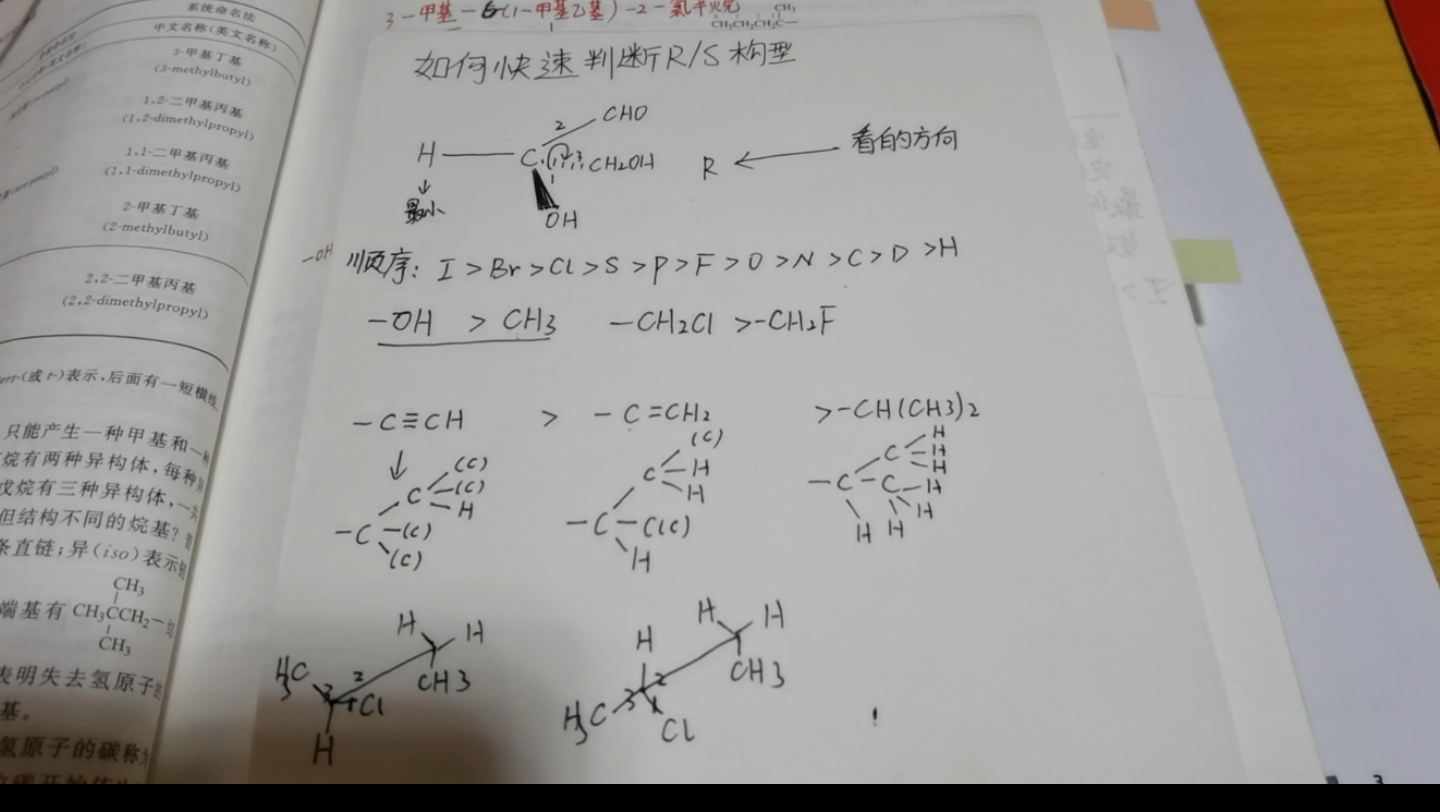 系统命名法
中文名称(英文名称)
3-甲基丁基
(3-methylbutyl)
1,2-二甲基丙基
(1,2-dimethylpropyl)
1,1-二甲基丙基
(1,1-dimethylpropyl)
2-甲基丁基
(2-methylbutyl)
2,2-二甲基丙基
(2,2-dimethylpropyl)
(或 t-)表示,后面有一短横线
只能产生一种甲基和一种
烷有两种异构体,每种异
戊烷有三种异构体,一
但结构不同的烷基?
条直链;异(iso)表示
CH₃
端基有 CH₃CCH₂—
CH₃
表明失去氢原子
基。
氢原子的碳称为
3-甲基-6(1-甲基乙基)-2-氯辛烷
CH₃
CH₃CH₂CH₂C—
如何快速判断R/S构型
2 CHO
H — C 1 3 CH₂OH R ← 看的方向
↓
最小 OH
-OH 顺序: I > Br > Cl > S > P > F > O > N > C > D > H
-OH > CH3 -CH₂Cl > -CH₂F
-C≡CH > -C=CH₂ > -CH(CH3)₂
↓ (C) (C) H
C (C) C H C H
H H H
-C (C) -C C(C) -C-C H
(C) H H H H
H H H H H
H₃C 2 CH3 CH3
3 1 Cl H₃C 3 2
H 1 Cl
3